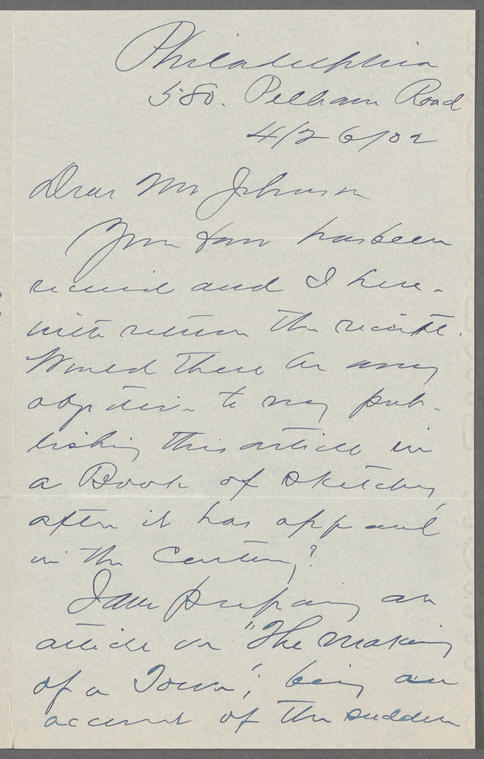 Philadelphia
580. Pelham Road
4/26/02
Dear Mr Johnson
Your favor has been
received and I here-
with return the receipt.
Would there be any
objection to my pub-
lishing this article in
a Book of Sketches,
after it has appeared
in the Century?
I am preparing an
article on "The making
of a Town", being an
account of the sudden